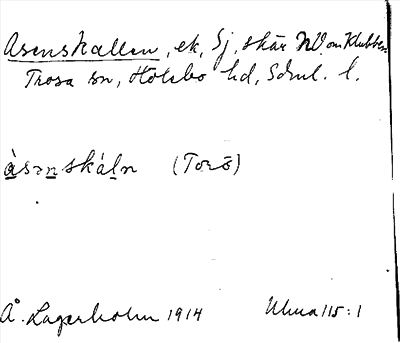 Asenskallen, ek, Sj, skär NV om Klubben
Trosa sn, Hölebo hd, Sdml. l.
àsənskáln (Torö)
Å. Lagerholm 1914 Uhua 115:1